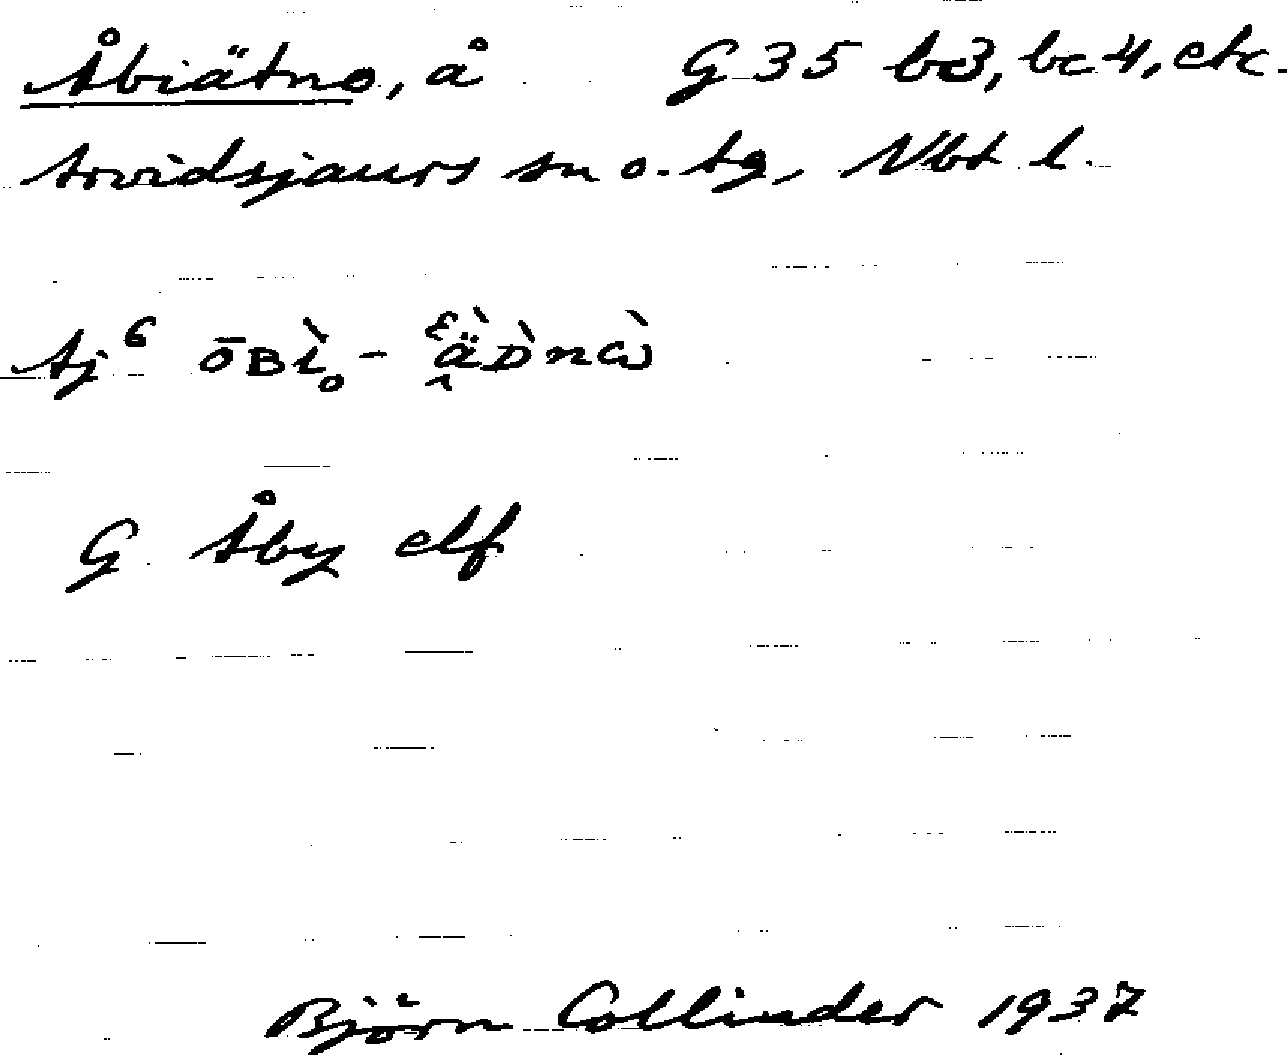 Åbiätno, å G 35 bc3, bc 4, etc.
Arvidsjaurs sn o. tg, Vbt l.
Aj⁶ ōʙì̥ - äᴅ̀nɑ̀
G Åby elf
Björn Collinder 1937